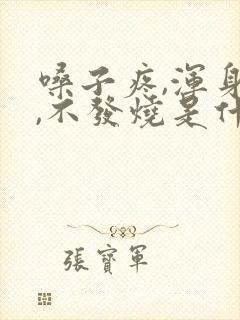 嗓子疼,渾身
,不發燒是什
張寶軍